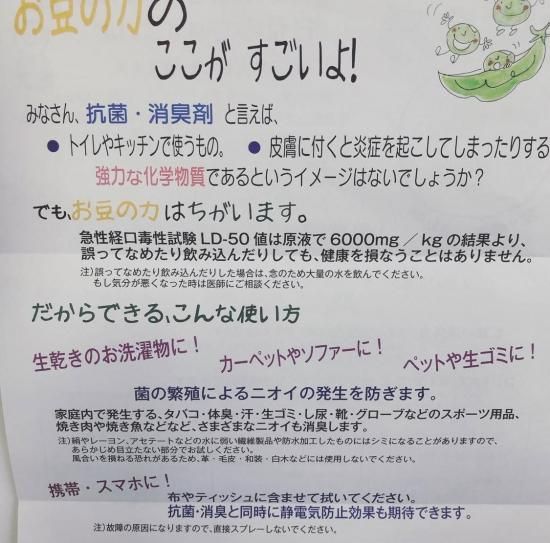 お豆の力の
ここが すごいよ!
みなさん、抗菌・消臭剤 と言えば、
● トイレやキッチンで使うもの。 ● 皮膚に付くと炎症を起こしてしまったりする
強力な化学物質であるというイメージはないでしょうか?
でも、お豆の力 はちがいます。
急性経口毒性試験 LD-50 値は原液で 6000mg／kg の結果より、
誤ってなめたり飲み込んだりしても、健康を損なうことはありません。
注)誤ってなめたり飲み込んだりした場合は、念のため大量の水を飲んでください。
もし気分が悪くなった時は医師にご相談ください。
だからできる、こんな使い方
生乾きのお洗濯物に! カーペットやソファーに! ペットや生ゴミに!
菌の繁殖によるニオイの発生を防ぎます。
家庭内で発生する、タバコ・体臭・汗・生ゴミ・し尿・靴・グローブなどのスポーツ用品、
焼き肉や焼き魚などなど、さまざまなニオイも消臭します。
注)絹やレーヨン、アセテートなどの水に弱い繊維製品や防水加工したものにはシミになることがありますので、
あらかじめ目立たない部分でお試しください。
風合いを損ねる恐れがあるため、革・毛皮・和装・白木などには使用しないでください。
携帯・スマホに!
布やティッシュに含ませて拭いてください。
抗菌・消臭と同時に静電気防止効果も期待できます。
注)故障の原因になりますので、直接スプレーしないでください。